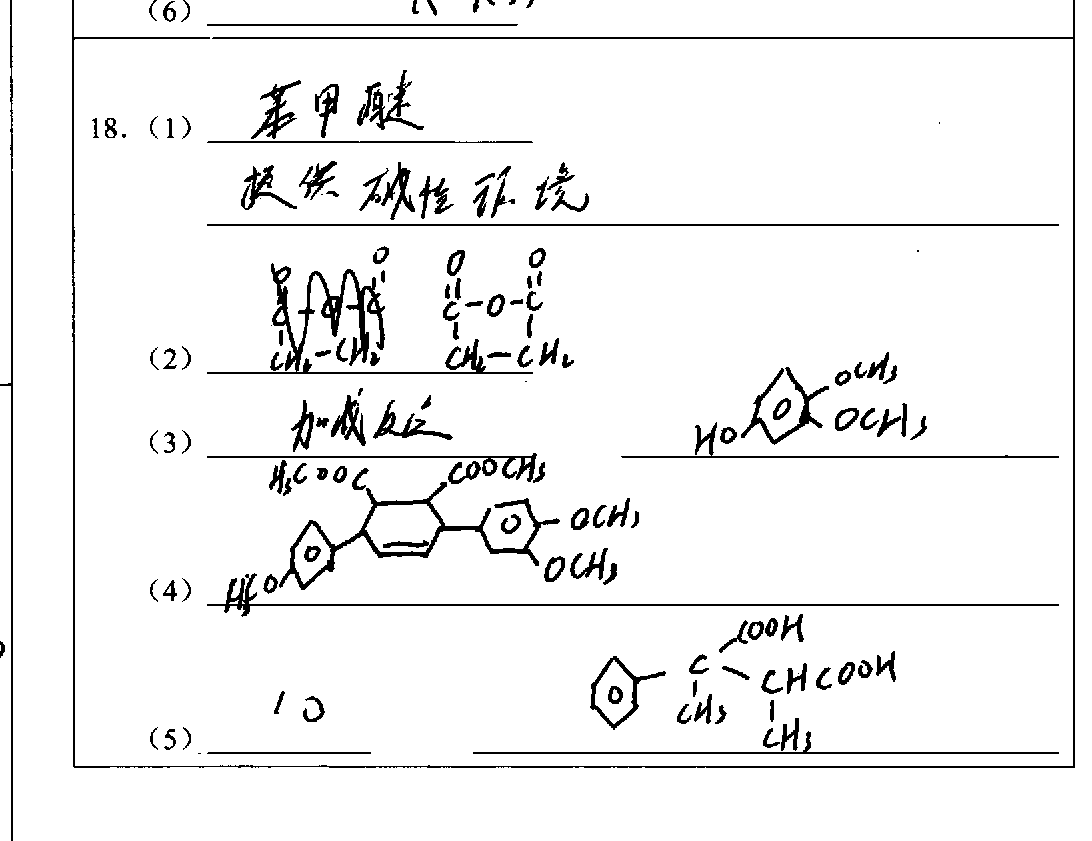 (6)
18. (1) 苯甲醚
提供碱性环境
(2) O O
C-O-C
CH₂-CH₂
(3) 加成反应 HO OCH₃ OCH₃
H₃COOC COOCH₃
OCH₃
OCH₃
(4) O
COOH
C CHCOOH
CH₃ CH₃
(5) 10